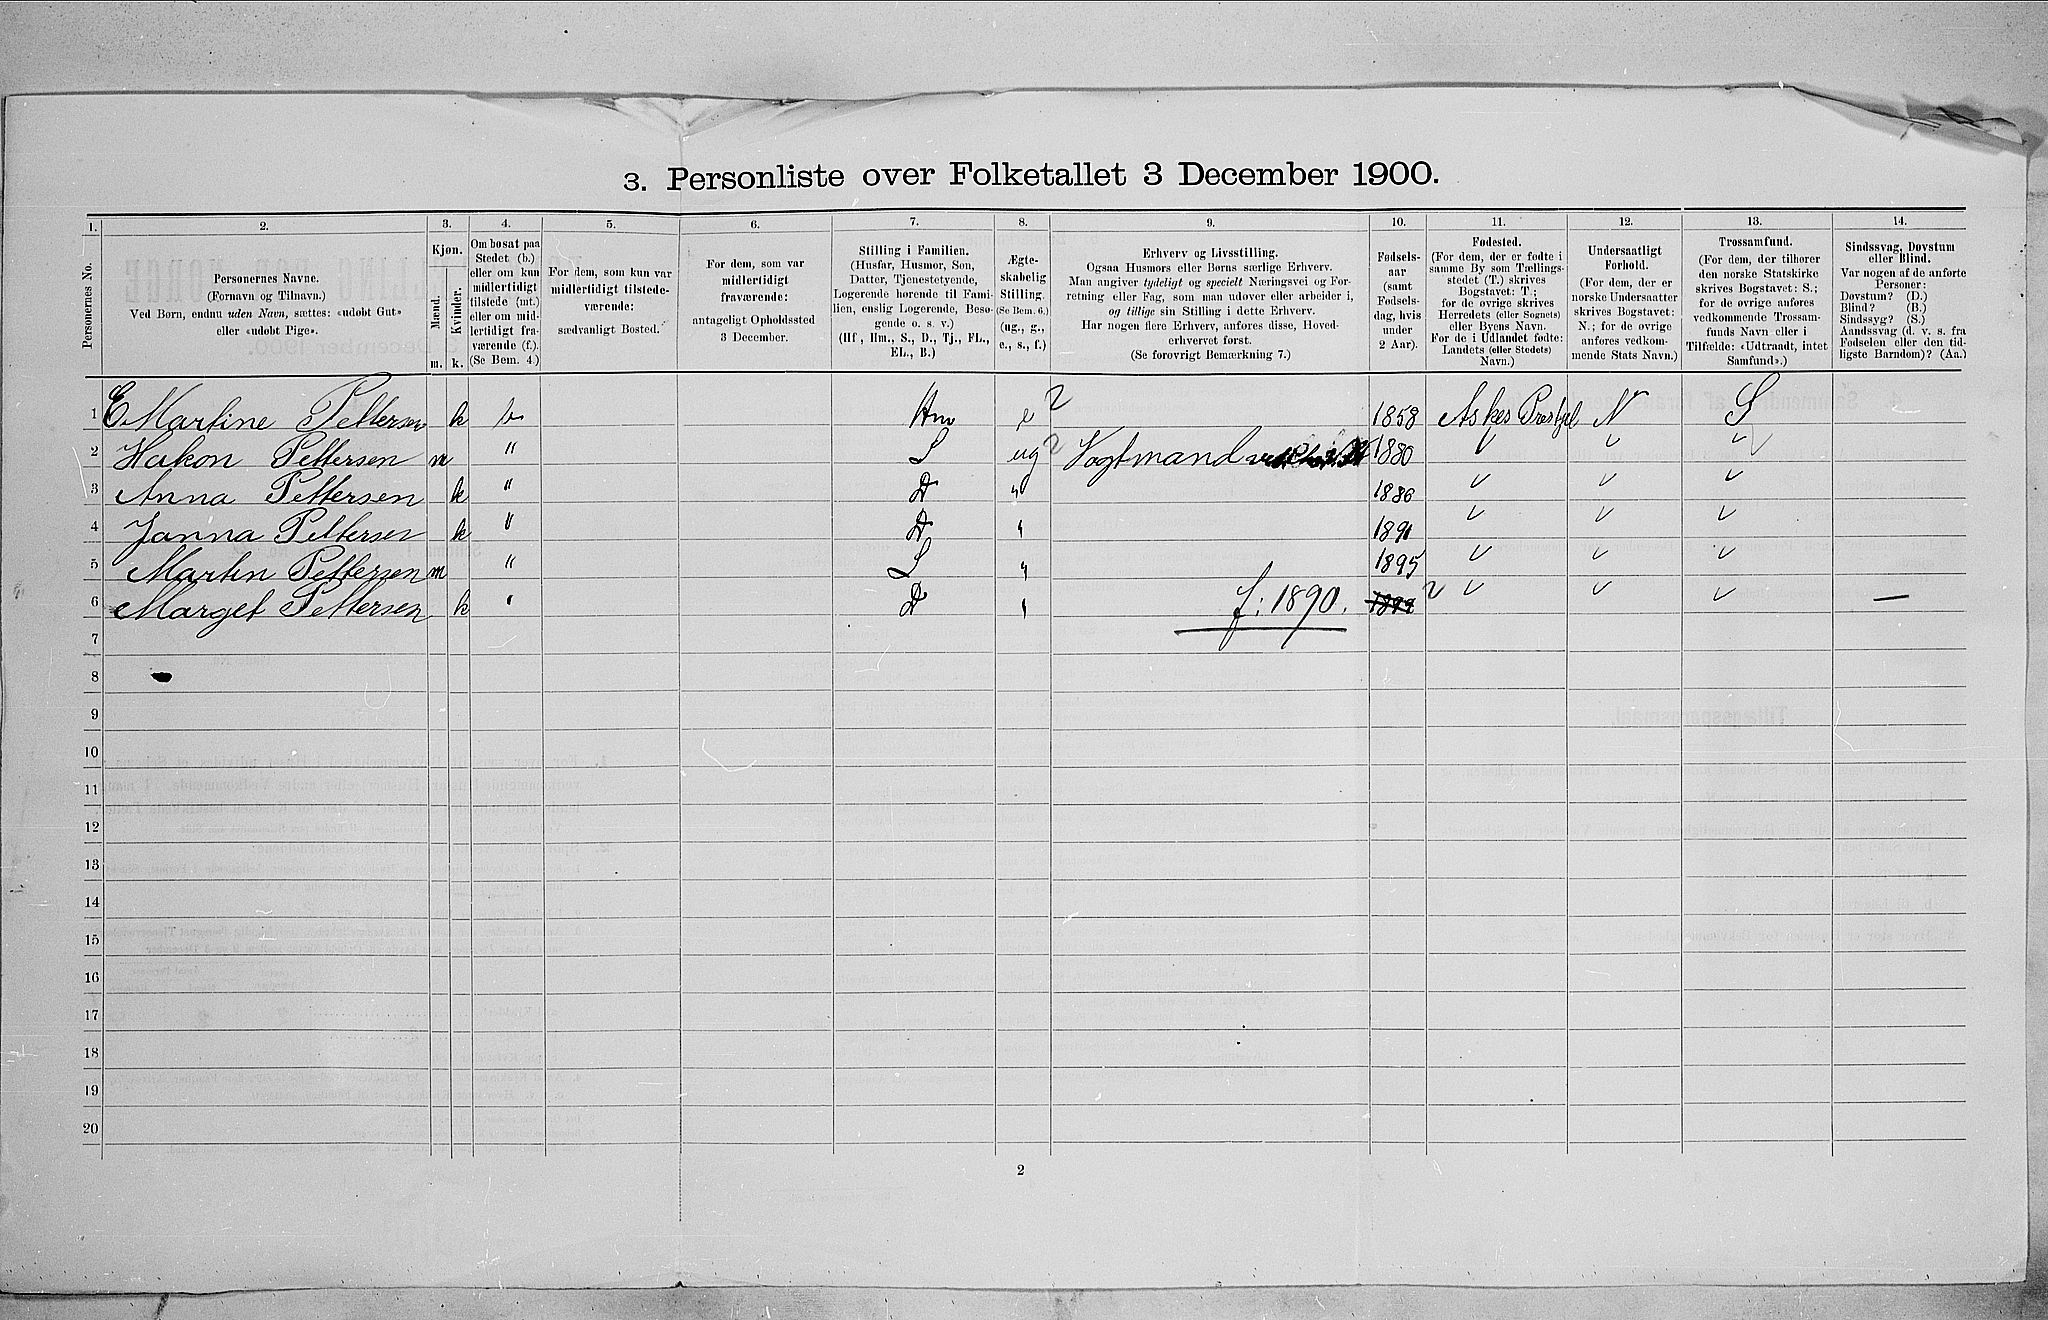 3. Personliste over Folketallet 3 December 1900.
1. 2. 3. 4. 5. 6. 7. 8. 9. 10. 11. 12. 13. 14.
Personernes No.
Personernes Navne.
(Fornavn og Tilnavn.)
Ved Børn, endnu uden Navn, sættes: «udøbt Gut»
eller «udøbt Pige».
Kjøn.
Mænd.
Kvinder.
m. k.
Om bosat paa
Stedet (b.)
eller om kun
midlertidigt
tilstede (mt.)
eller om mid-
lertidigt fra-
værende (f.).
(Se Bem. 4.)
For dem, som kun var
midlertidigt tilstede-
værende:
sædvanligt Bosted.
For dem, som var
midlertidigt
fraværende:
antageligt Opholdssted
3 December.
Stilling i Familien.
(Husfar, Husmor, Søn,
Datter, Tjenestetyende,
Logerende hørende til Fami-
lien, enslig Logerende, Besø-
gende o. s. v.)
(Hf, Hm., S., D., Tj., FL.,
EL., B.)
Ægte-
skabelig
Stilling.
(Se Bem. 6.)
(ug., g.,
e., s., f.)
Erhverv og Livsstilling.
Ogsaa Husmors eller Børns særlige Erhverv.
Man angiver tydeligt og specielt Næringsvei og For-
retning eller Fag, som man udøver eller arbeider i,
og tillige sin Stilling i dette Erhverv.
Har nogen flere Erhverv, anføres disse, Hoved-
erhvervet først.
(Se forøvrigt Bemærkning 7.)
Fødsels-
aar
(samt
Fødsels-
dag, hvis
under
2 Aar).
Fødested.
(For dem, der er fødte i
samme By som Tællings-
stedet (T.) skrives
Bogstavet: T.;
for de øvrige skrives
Herredets (eller Sognets)
eller Byens Navn.
For de i Udlandet fødte:
Landets (eller Stedets)
Navn.)
Undersaatligt
Forhold.
(For dem, der er
norske Undersaatter
skrives Bogstavet:
N.; for de øvrige
anføres vedkom-
mende Stats Navn.)
Trossamfund.
(For dem, der tilhører
den norske Statskirke
skrives Bogstavet: S.;
for de øvrige anføres
vedkommende Trossam-
funds Navn eller i
Tilfælde: «Udtraadt, intet
Samfund».)
Sindssvag, Døvstum
eller Blind.
Var nogen af de anførte
Personer:
Døvstum? (D.)
Blind? (B.)
Sindssyg? (S.)
Aandssvag (d. v. s. fra
Fødselen eller den tid-
ligste Barndom)? (Aa.)
1 E Martine Pettersen k b Hm e 1858 Askes Præstgl N S
2 Hakon Pettersen m " S ug Vogtmand 1880
3 Anna Pettersen k " D " 1886
4 Janna Pettersen k " D " 1891
5 Martin Pettersen m " S " 1895
6 Marget Pettersen k " D " f: 1890. —
7
8
9
10
11
12
13
14
15
16
17
18
19
20
2